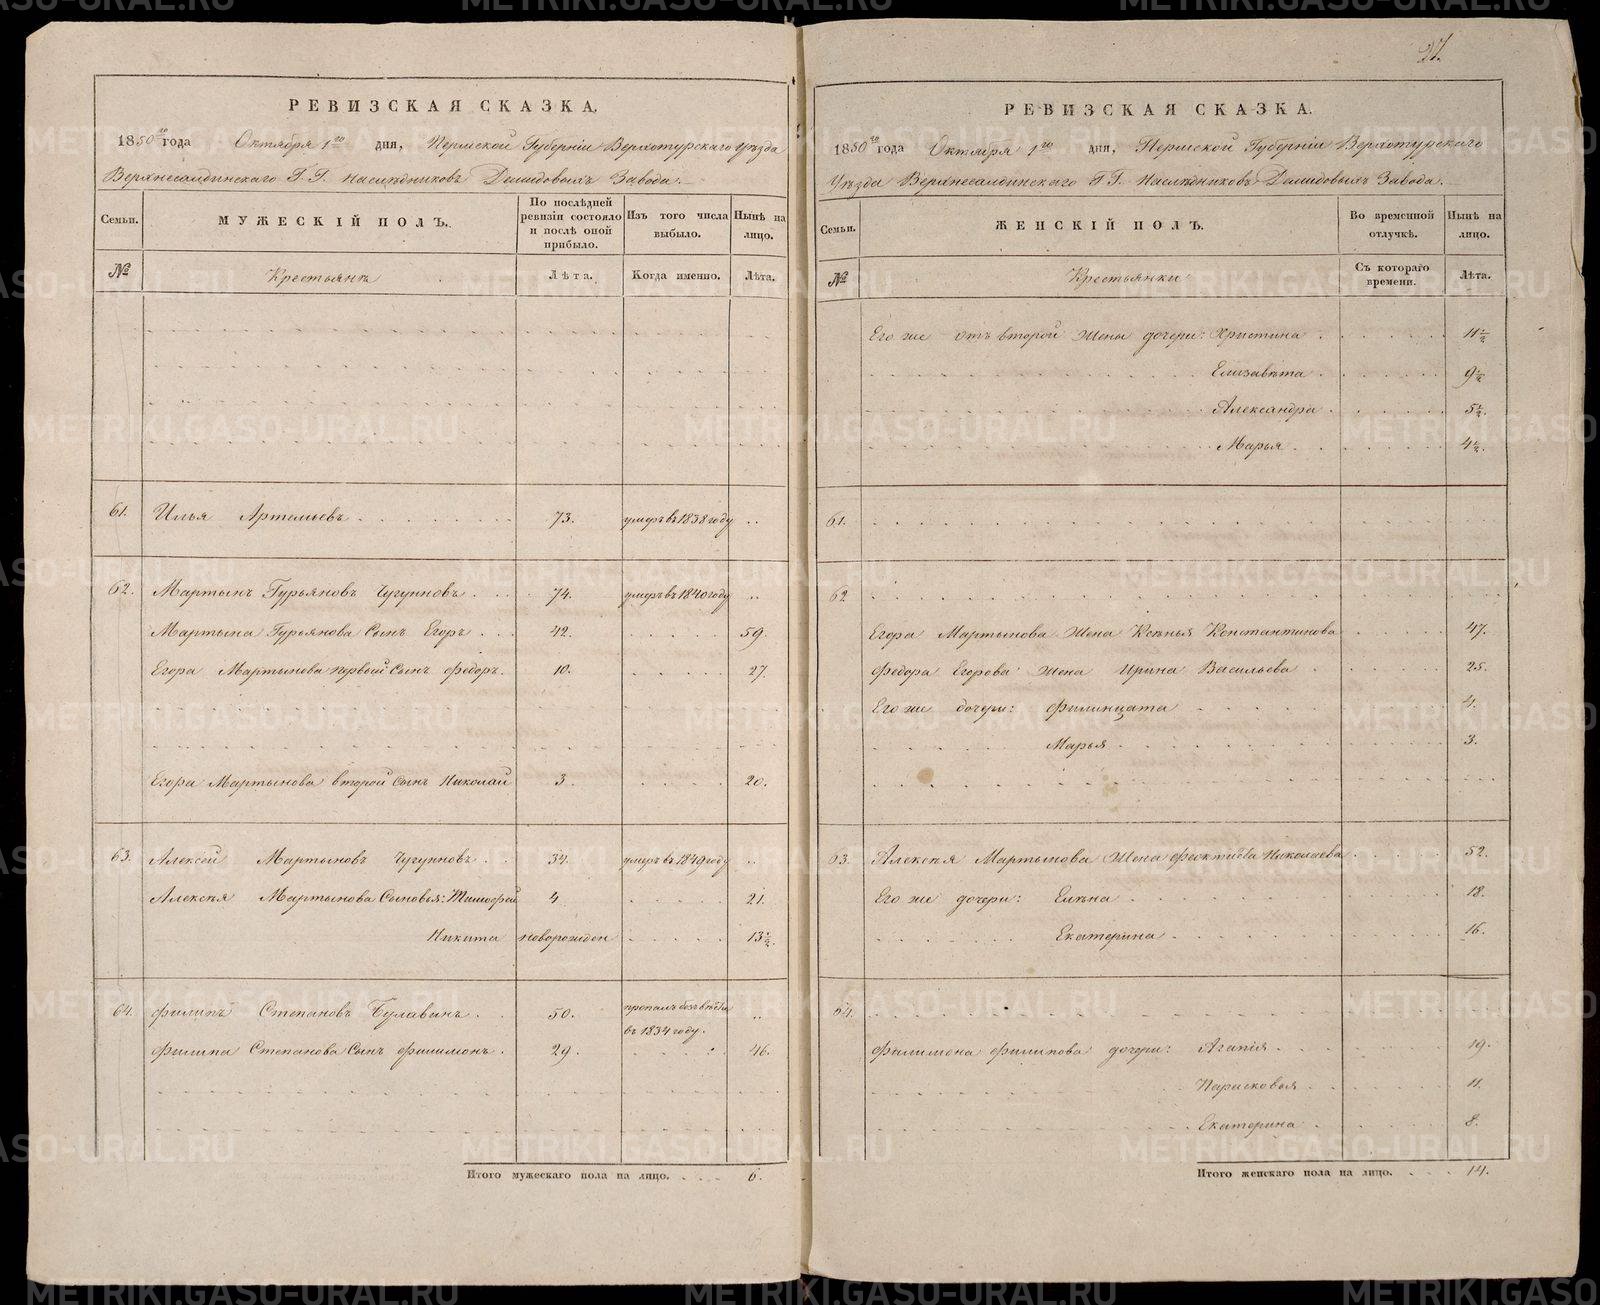 РЕВИЗСКАЯ СКАЗКА.
1850го года Октября 1го дня, Пермской Губернiи Верхотурскаго уѣзда
Верхнесалдинскаго Г.Г. наслѣдниковъ Демидовыхъ Завода.
Семьи.
МУЖЕСКIЙ ПОЛЪ.
По послѣдней ревизiи состояло и послѣ оной прибыло.
Изъ того числа выбыло.
Нынѣ на лицо.
№
Крестьянъ
Лѣта.
Когда именно.
Лѣта.
61. Илья Артемьевъ 73. умеръ въ 1838 году
62. Мартынъ Гурьяновъ Чугуновъ 74. умеръ въ 1840 году
Мартына Гурьянова Сынъ Егоръ 42. 59.
Егора Мартынова первый Сынъ Федоръ. 10. 27.
Егора Мартынова второй Сынъ Николай 3. 20.
63. Алексей Мартыновъ Чугуновъ 34. умеръ въ 1849 году
Алексѣя Мартынова Сыновья: Тимофей 4 21.
Никита новорожден 13½
64. Филипъ Степановъ Булавинъ 50. пропалъ безъ вѣсти
въ 1834 году.
Филипа Степанова Сынъ Филимонъ. 29. 46.
Итого мужескаго пола на лицо. 6.
27.
РЕВИЗСКАЯ СКАЗКА.
1850го года Октября 1го дня, Пермской Губернiи Верхотурскаго
Уѣзда Верхнесалдинскаго Г.Г. Наслѣдниковъ Демидовыхъ Завода.
Семьи.
ЖЕНСКIЙ ПОЛЪ.
Во временной отлучкѣ.
Нынѣ на лицо.
№
Крестьянки
Съ котораго времени.
Лѣта.
Его же отъ второй жены дочери: Христина 11½
Елизавѣта 9½
Александра 5½.
Марья 4½.
61.
62
Егора Мартынова жена Ксѣнья Константинова 47.
Федора Егорова жена Ирина Васильева 25.
Его же дочери: Филицата 4.
Марья 3.
63. Алексѣя Мартынова жена Феоктиста Николаева 52.
Его же дочери: Елѣна 18.
Екатерина 16.
64.
Филимона Филипова дочери: Агапiя 19.
Парасковья 11.
Екатерина 8.
Итого женскаго пола на лицо. 14.
METRIKI.GASO-URAL.RU